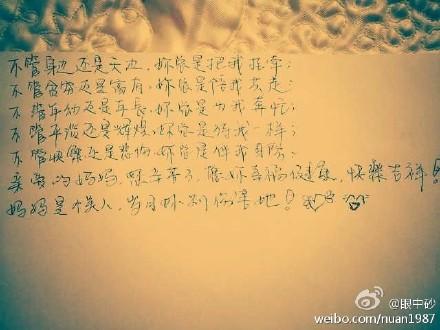 不管身边还是天边，妳总是把我挂牵；
不管富穷还是富有，妳总是陪我共走；
不管年幼还是年长，妳总是为我奔忙；
不管平淡还是辉煌，妳总是待我一样；
不管快乐还是悲伤，妳总是伴我身旁；
亲爱的妈妈，您辛苦了，愿妳幸福健康，快樂吉祥
妈妈是个美人，岁月妳别伤害她！
@眼中砂
weibo.com/nuan1987